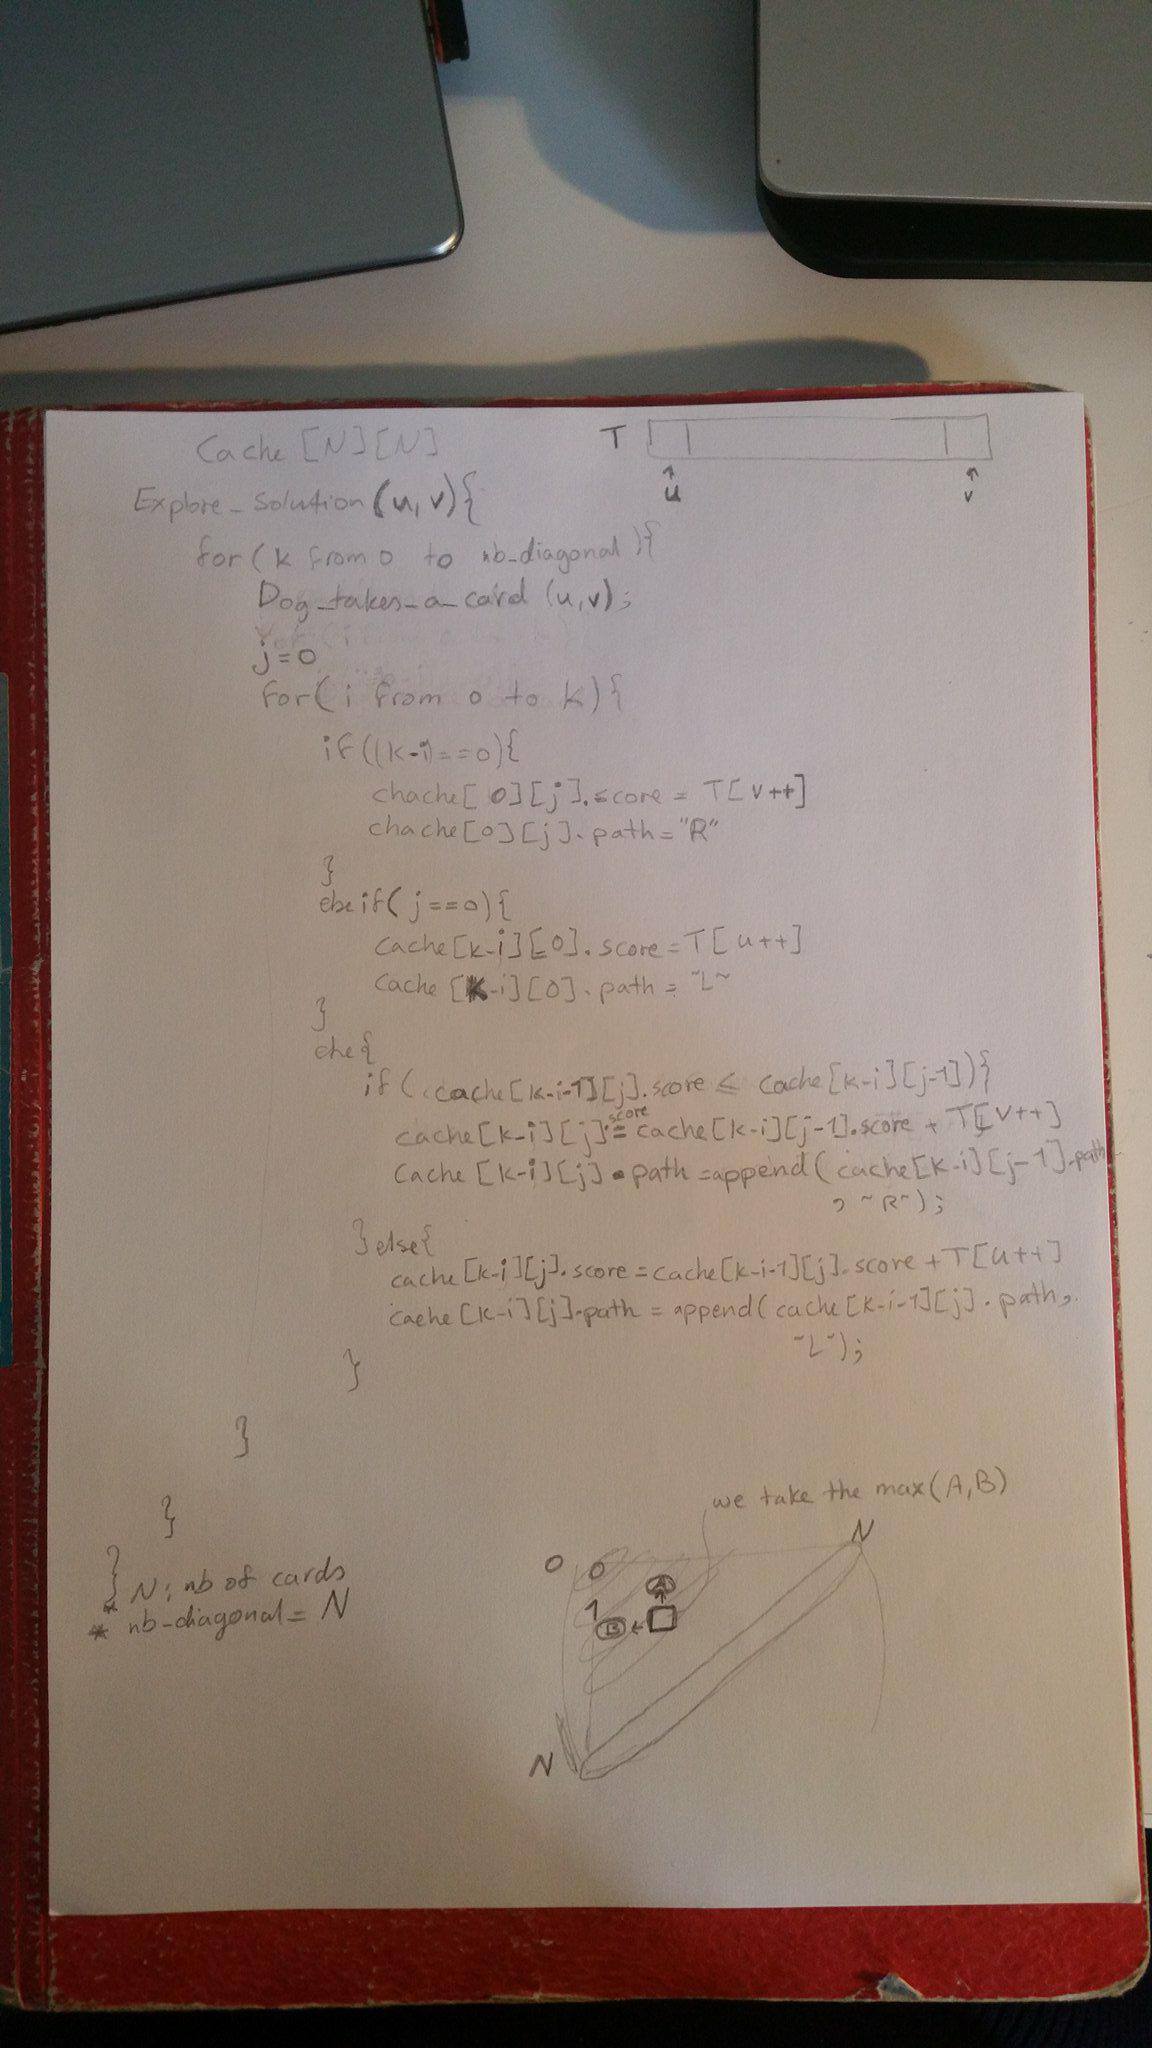 Cache [N][N]
T
u
v
Explore_solution (u, v) {
for ( k from 0 to nb_diagonal ) {
Dog_takes_a_card (u, v);
j = 0
for ( i from 0 to k) {
if ((k-i) == 0) {
chache[ 0][j].score = T[v++]
chache[0][j].path = "R"
}
else if ( j == 0) {
cache[k-i][0].score = T[u++]
cache [k-i][0].path = "L"
}
else {
if ( cache[k-i-1][j].score ≤ cache[k-i][j-1]) {
cache[k-i][j].score = cache[k-i][j-1].score + T[v++]
cache [k-i][j].path = append( cache[k-i][j-1].path
, "R");
} else {
cache[k-i][j].score = cache[k-i-1][j].score + T[u++]
cache[k-i][j].path = append( cache[k-i-1][j].path,
"L");
}
}
}
}
we take the max(A, B)
0 0 N
A
1 B
N
N : nb of cards
* nb-diagonal = N